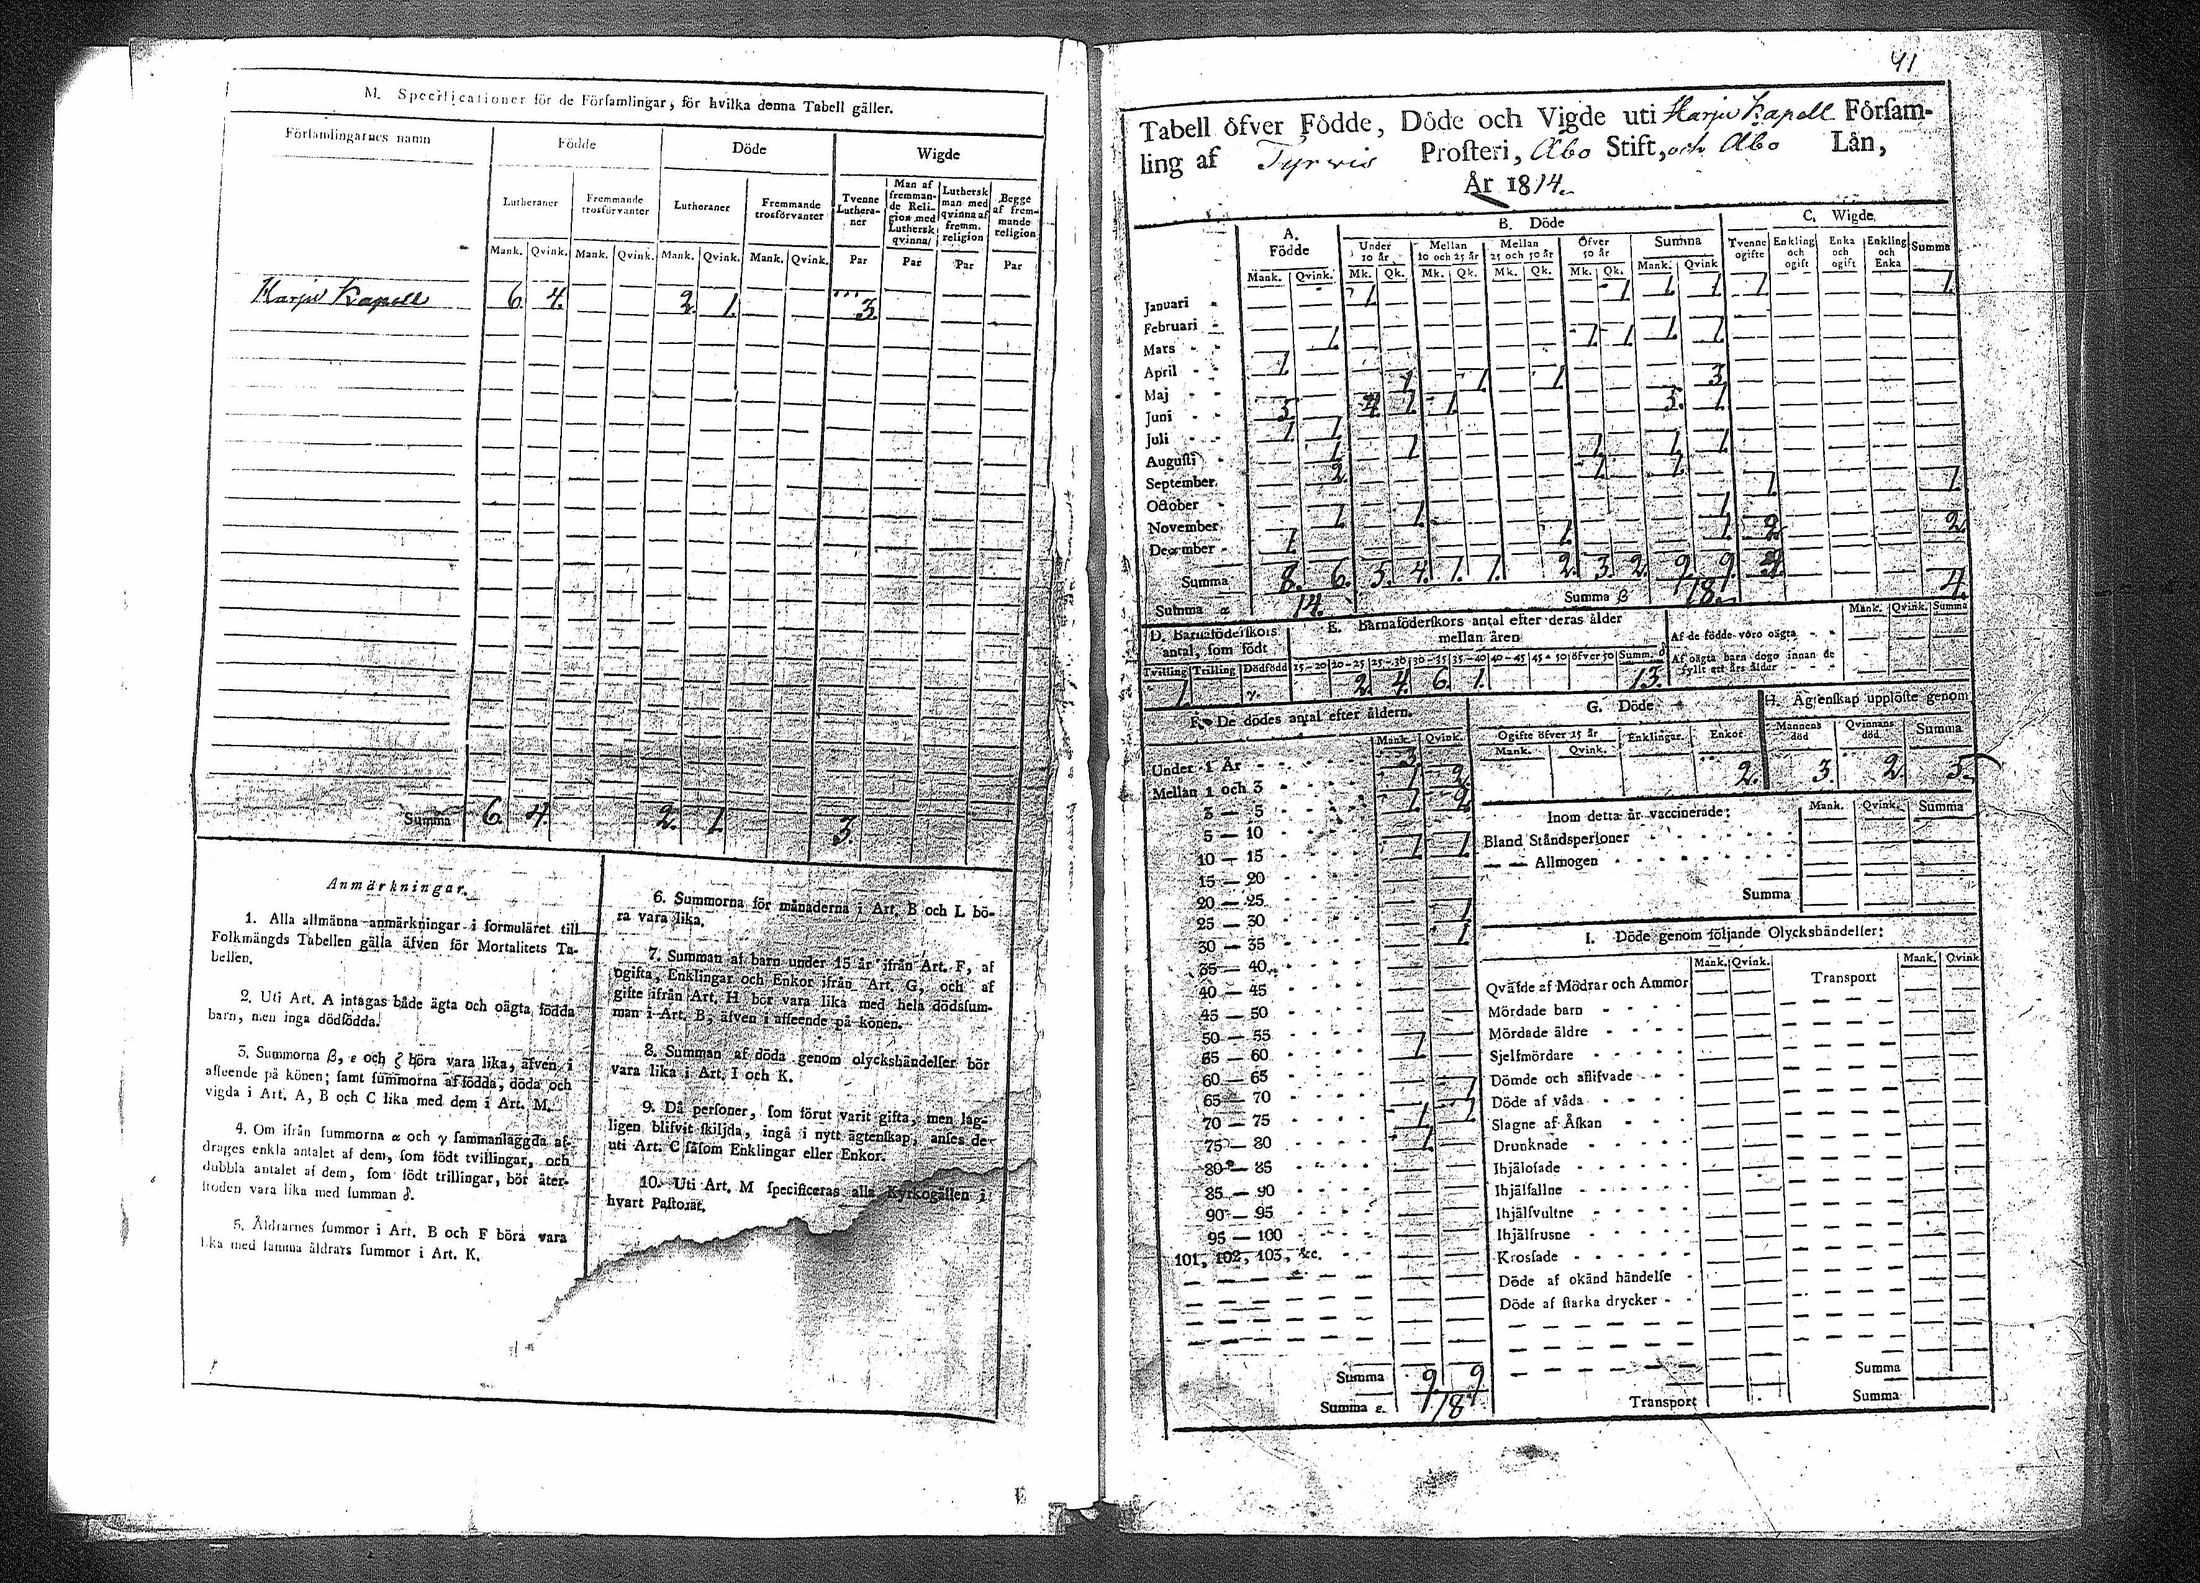 M. Specificationer för de Förſamlingar, för hvilka denna Tabell gäller.
Förſamlingarnes namn
Födde
Döde
Wigde
Lutheraner
Fremmande trosförvanter
Lutheraner
Fremmande trosförvanter
Tvenne Luthera-ner
Man af fremman-de Reli-gion med Luthersk qvinna
Luthersk man med qvinna af fremm. religion
Begge af frem-mande religion
Mank. Qvink. Mank. Qvink. Mank. Qvink. Mank. Qvink. Par Par Par Par
Harju Kapell 6. 4. 2. 1. 3.
Summa 6. 4. 2. 1. 3.
Anmärkningar.
1. Alla allmänna anmärkningar i formuläret till
Folkmängds Tabellen gälla äfven för Mortalitets Ta-
bellen.
2. Uti Art. A intagas både ägta och oägta födda
barn, men inga dödfödda.
3. Summorna β, ε och ζ böra vara lika, äfven i
afſeende på könen; ſamt ſummorna af födda, döda och
vigda i Art. A, B och C lika med dem i Art. M.
4. Om ifrån ſummorna α och γ ſammanlaggda af-
drages enkla antalet af dem, ſom födt tvillingar, och
dubbla antalet af dem, ſom födt trillingar, bör åter-
ſtoden vara lika med ſumman δ.
5. Åldrarnes ſummor i Art. B och F böra vara
lika med ſamma åldrars ſummor i Art. K.
6. Summorna för månaderna i Art. B och L bö-
ra vara lika.
7. Summan af barn under 15 år ifrån Art. F, af
ogifta, Enklingar och Enkor ifrån Art. G, och af
gifte ifrån Art. H bör vara lika med hela dödsſum-
man i Art. B, äfven i afſeende på könen.
8. Summan af döda genom olyckshändelſer bör
vara lika i Art. I och K.
9. Då perſoner, ſom förut varit gifta, men lag-
ligen blifvit ſkiljda, ingå i nytt ägtenſkap, anſes de
uti Art. C ſåſom Enklingar eller Enkor.
10. Uti Art. M ſpecificeras alla Kyrkogällen i
hvart Paſtorat.
41
Tabell öfver Födde, Döde och Vigde uti Harju Kapell Förſam-
ling af Tyrvis Proſteri, Åbo Stift, och Åbo Län,
År 1814.
A. Födde
B. Döde
C. Wigde
Under 10 år
Mellan 10 och 25 år
Mellan 25 och 50 år
Öfver 50 år
Summa
Tvenne ogifte
Enkling och ogift
Enka och ogift
Enkling och Enka
Summa
Mank. Qvink. Mk. Qk. Mk. Qk. Mk. Qk. Mk. Qk. Mank. Qvink
Januari 1. 1. 1. 1. 1. 1.
Februari
Mars 1. 1. 1. 1. 1.
April 1.
Maj 1. 1. 1. 3.
Juni 5. 4. 1. 1. 5. 1.
Juli 1. 1.
Auguſti 1. 1. 1. 1. 1.
September 2. 1. 1.
October 1. 1.
November 1. 1. 1.
December 1. 1. 1. 2. 2.
Summa 8. 6. 5. 4. 1. 1. 2. 3. 2. 9. 9. 4. 4.
Summa α 14.
Summa β 18.
D. Barnaföderſkors antal, ſom födt
Tvilling Trilling Dödfödd
1. γ.
E. Barnaföderſkors antal efter deras ålder
mellan åren
15-20 20-25 25-30 30-35 35-40 40-45 45-50 öfver 50 Summ. δ
2. 4. 6. 1. 13.
Mank. Qvink. Summa
Af de födde voro oägta
Af oägta barn dogo innan de
fyllt ett års ålder
F. De dödes antal efter åldern.
Mank. Qvink.
Under 1 År 3.
Mellan 1 och 3 1. 2.
3 — 5 1. 2.
5 — 10
10 — 15 1. 1.
15 — 20
20 — 25
25 — 30 1.
30 — 35 1.
35 — 40
40 — 45
45 — 50
50 — 55
55 — 60 1.
60 — 65
65 — 70 1.
70 — 75 1. 1.
75 — 80 1.
80 — 85
85 — 90
90 — 95
95 — 100
101, 102, 103, &c.
Summa 9. 9.
Summa ε. 18.
G. Döde
Ogifte öfver 15 år
Mank. Qvink.
Enklingar.
Enkor
2.
H. Ägtenſkap upplöſte genom
Mannens död
Qvinnans död
Summa
3. 2. 5.
Inom detta år vaccinerade:
Mank. Qvink. Summa
Bland Ståndsperſoner
— — Allmogen
Summa
I. Döde genom följande Olyckshändelſer:
Mank. Qvink.
Transport
Mank. Qvink
Qväfde af Mödrar och Ammor
Mördade barn
Mördade äldre
Sjelfmördare
Dömde och aflifvade
Döde af våda
Slagne af Åſkan
Drunknade
Ihjäloſade
Ihjälfallne
Ihjälſvultne
Ihjälfrusne
Krosſade
Döde af okänd händelſe
Döde af ſtarka drycker
Summa
Transport
Summa